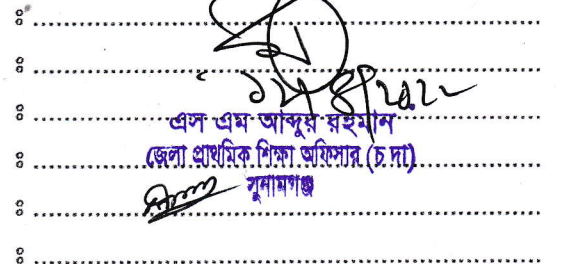 ঃ ....................
ঃ ....................
ঃ ....................
এস এম আব্দুর রহমান
জেলা প্রাথমিক শিক্ষা অফিসার (চ দা)
সুনামগঞ্জ
ঃ ....................
ঃ ....................
ঃ ....................